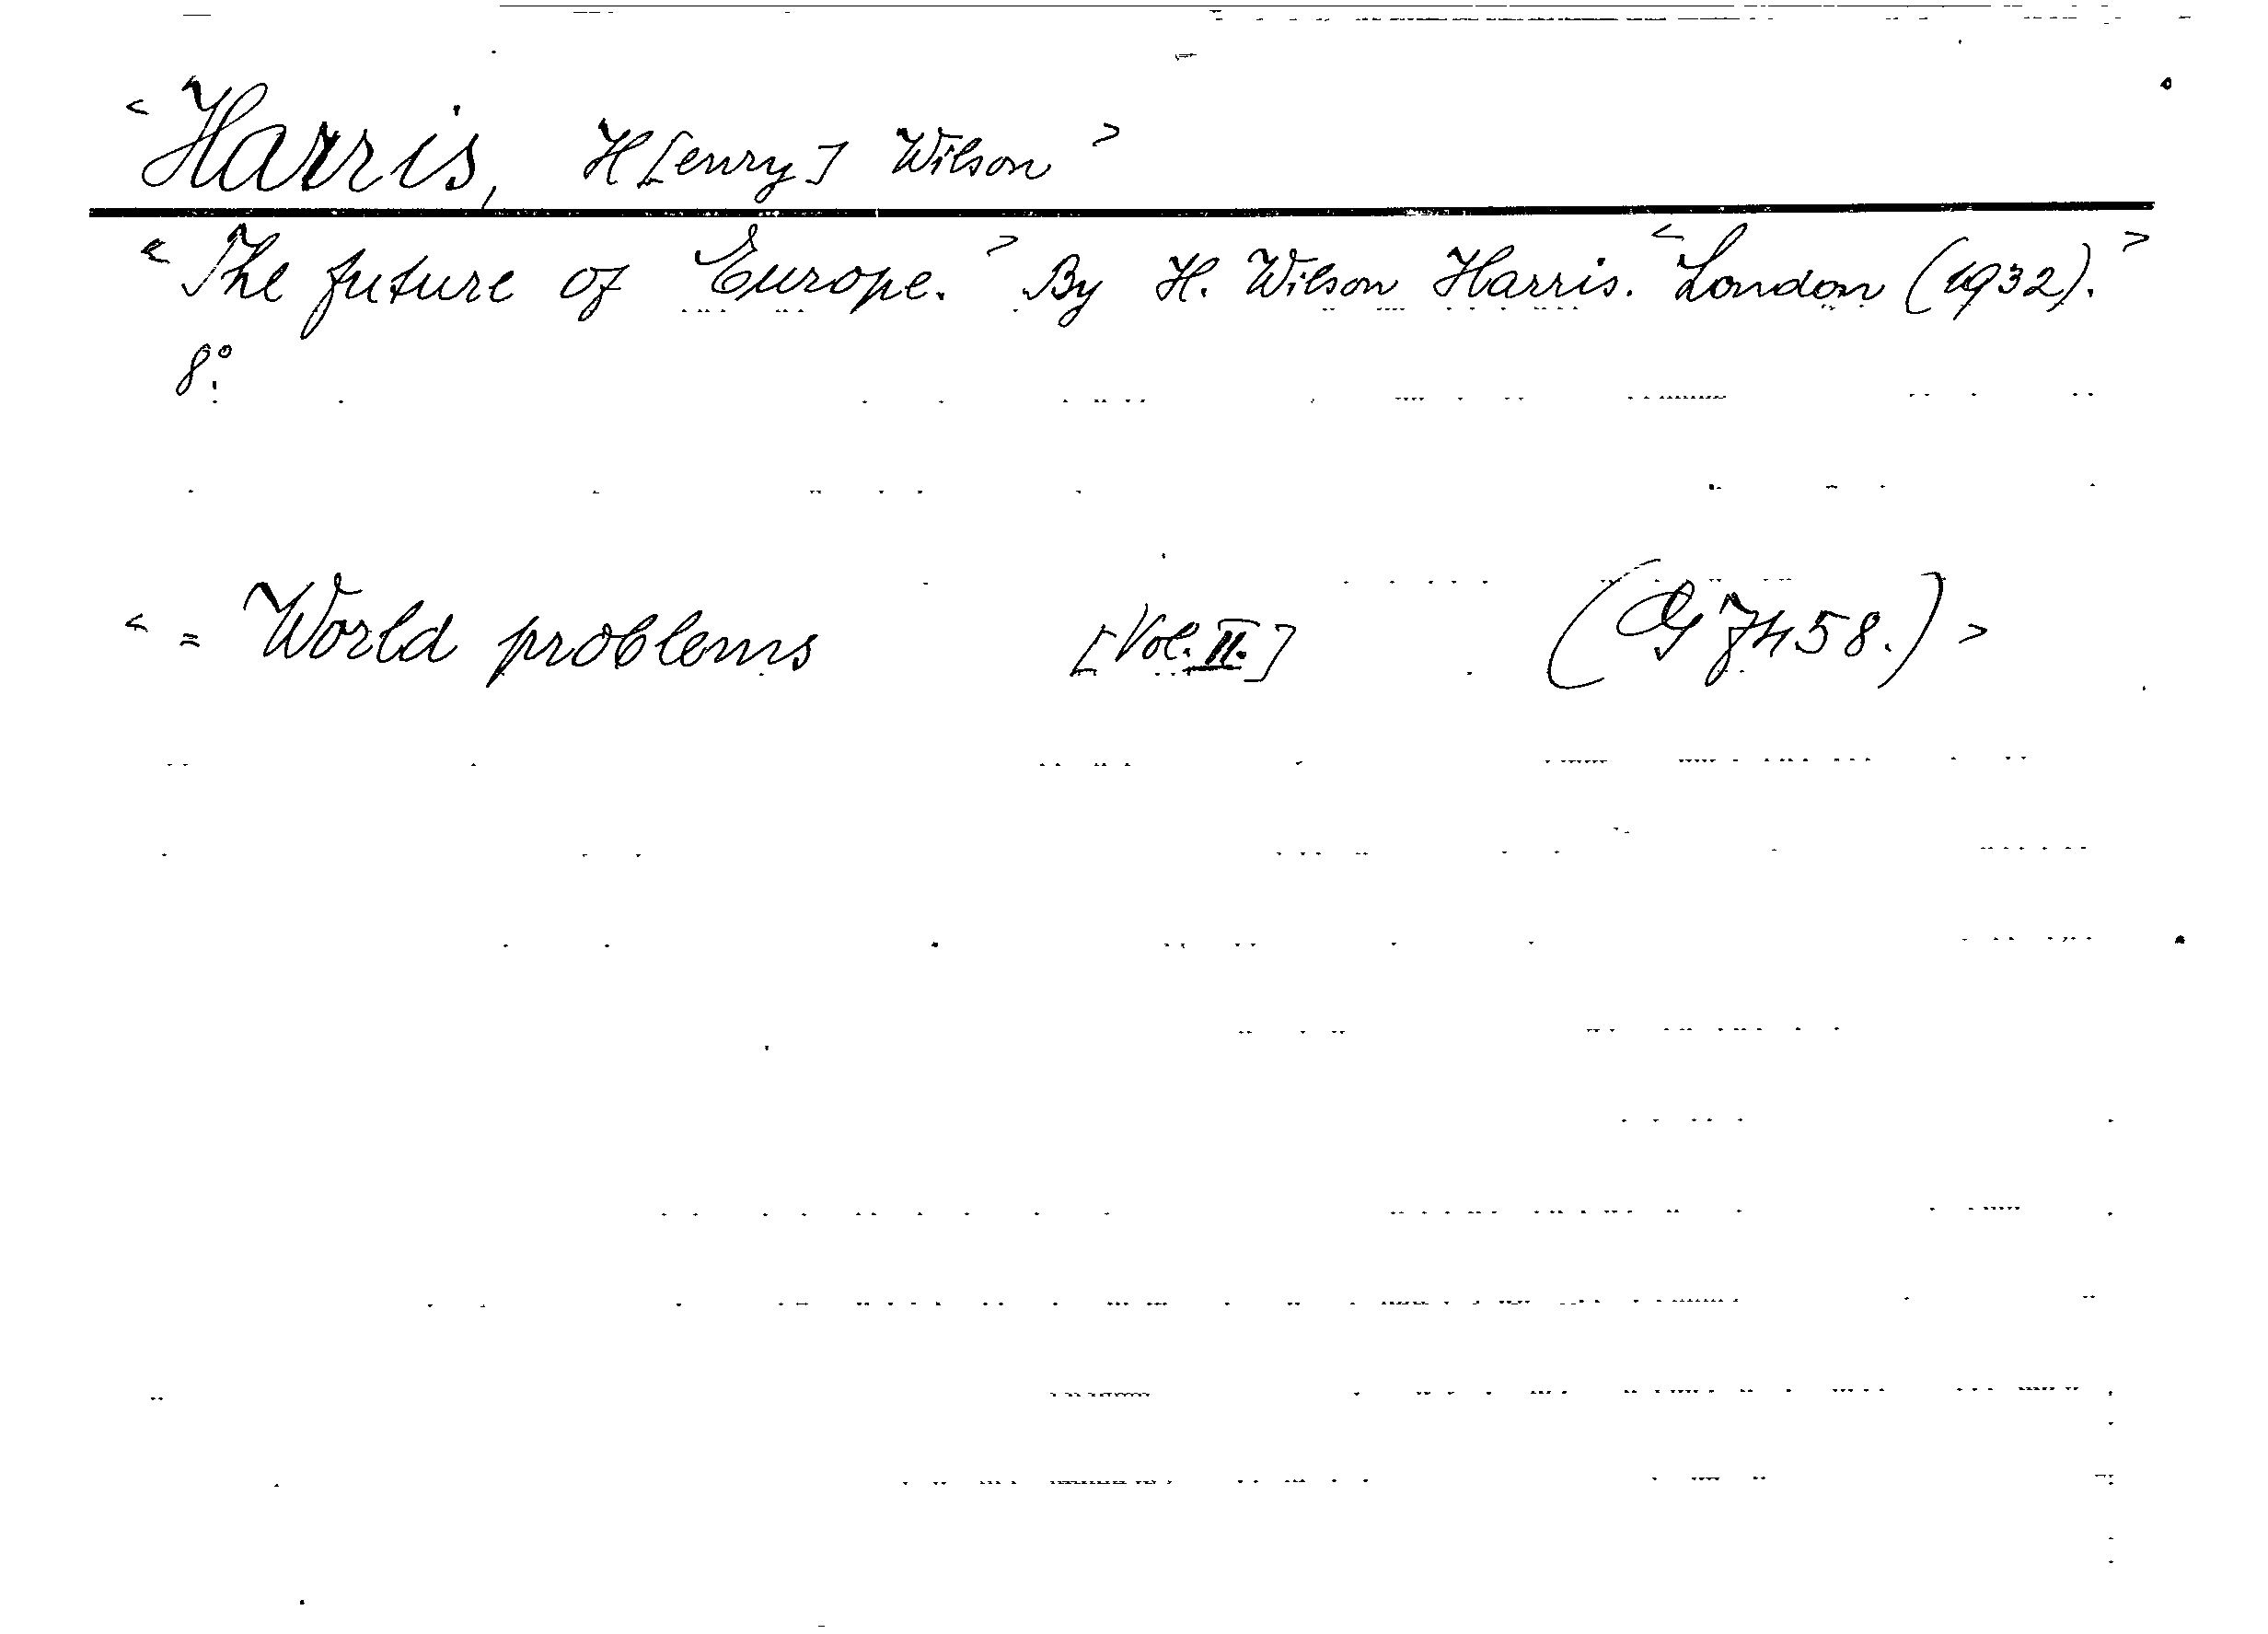 < Harris, H[enry] Wilson >
« The future of Europe. > By H. Wilson Harris. < London (1932). >
8°.
< = World problems [Vol. II.] (G 7458.) >